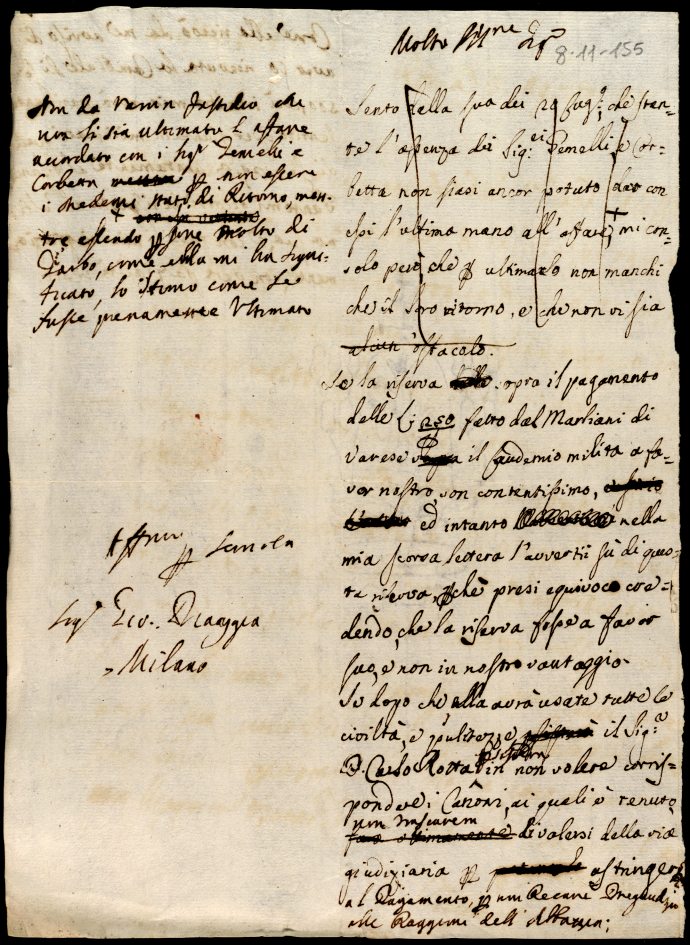 Molto Ill.ne Sig.r
8-11-155
Sento dalla sua dei 29 Lug.o, che stan-
te l'assenza dei Sig.ri Gemelli, e Cor-
betta non siasi ancor potuto dar con
essi l'ultima mano all'affare, mi con-
solo però che p ultimarlo non manchi
che il loro ritorno, e che non vi sia
alcun ostacolo.
Se la riserva sopra il pagamento
delle L: 250 fatto dal Marliani di
Varese il Laudemio milita a fa-
vor nostro, son contentissimo,
ed intanto nella
mia scorsa lettera l'avvertii sù di ques-
ta riserva, pchè presi equivoco cre-
dendo, che la riserva fosse a favor
suo, e non in nostro vantaggio.
Se dopo che ella avrà usate tutte le
civiltà, e pulitezze il Sig.r
D. Carlo Rotta in non volere corris-
pondere i Canoni, ai quali è tenuto
non
di valersi della via
giudiziaria p astringerlo
al Pagamento, p non Recare Pregiudizio
alle Raggioni dell'
Non da verun fastidio che
non si sia ultimato l'affare
acordato con i Sig.ri Gemelli e
Corbetta p non essere
i medemi stati di Ritorno, men-
tre essendo Molto di
Garbo, come ella mi ha signi-
ficato, lo stimo come se
fusse pienamente Ultimato
Sig.r
Milano